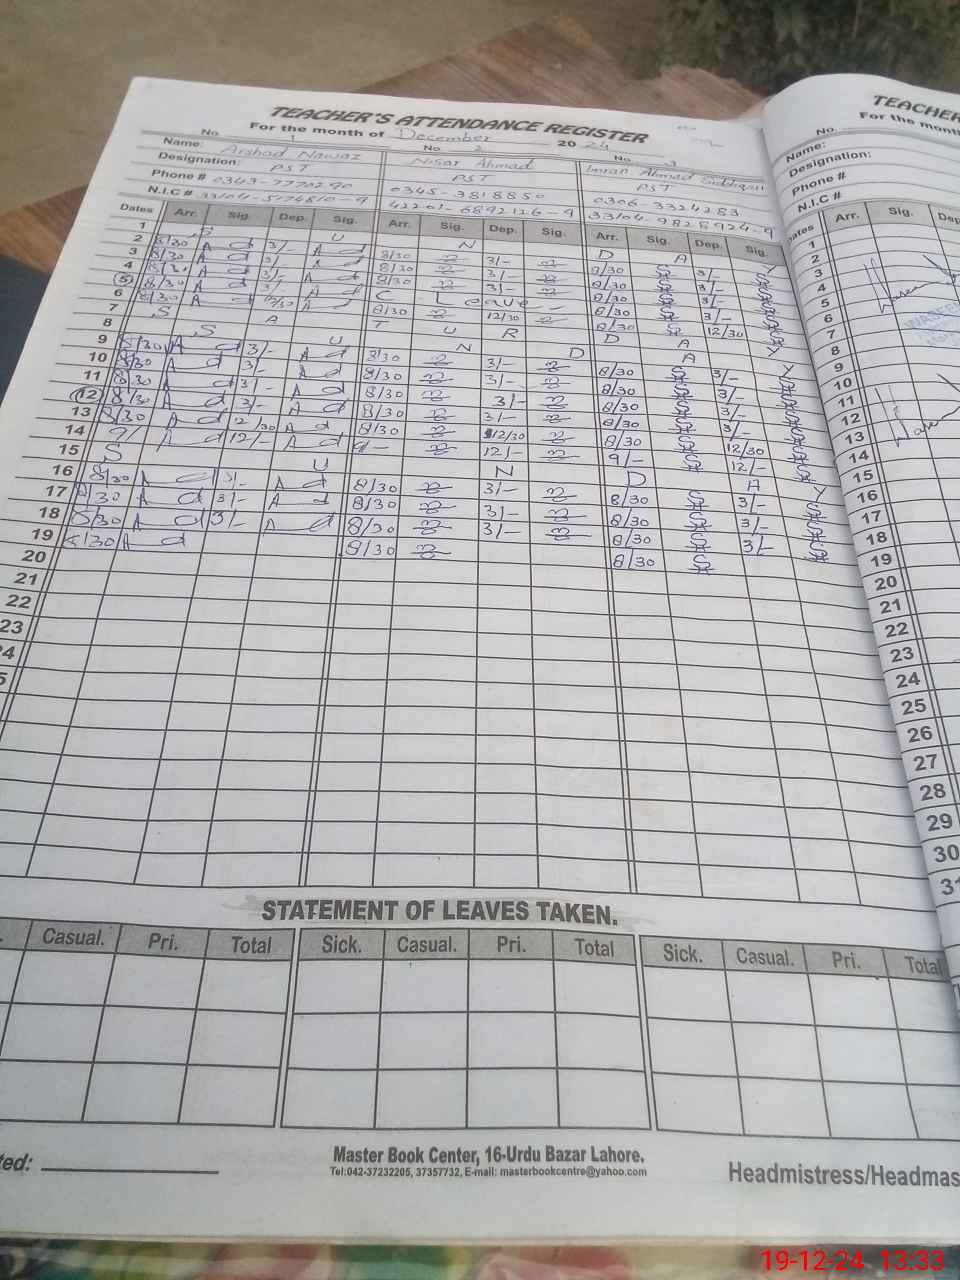 TEACHER'S ATTENDANCE REGISTER
For the month of December 2024
No. 1 No. 2 No. 3
Name: Arshad Nawaz Nisar Ahmad Imran Ahmad Siddiqui
Designation: PST PST PST
Phone # 0343-7770290 0345-3818850 0306-3324283
N.I.C # 33104-5174810-9 42201-6892126-9 33104-9828924-9
Dates Arr. Sig. Dep. Sig. Arr. Sig. Dep. Sig. Arr. Sig. Dep. Sig.
1 S U N D A Y
2 8/30 A d 3/- A d 8/30 3/- 8/30 3/-
3 8/30 A d 3/- A d 8/30 3/- 8/30 3/-
4 8/30 A d 3/- A d 8/30 3/- 8/30 3/-
5 8/30 A d 3/- A d C Leave 8/30 3/-
6 8/30 A d 12/30 A d 8/30 12/30 8/30 12/30
7 S A T U R D A Y
8 S U N D A Y
9 8/30 A d 3/- A d 8/30 3/- 8/30 3/-
10 8/30 A d 3/- A d 8/30 3/- 8/30 3/-
11 8/30 A d 3/- A d 8/30 3/- 8/30 3/-
12 8/30 A d 3/- A d 8/30 3/- 8/30 3/-
13 8/30 A d 12/30 A d 8/30 12/30 8/30 12/30
14 9/- A d 12/- A d 9/- 12/- 9/- 12/-
15 S U N D A Y
16 8/30 A d 3/- A d 8/30 3/- 8/30 3/-
17 8/30 A d 3/- A d 8/30 3/- 8/30 3/-
18 8/30 A d 3/- A d 8/30 3/- 8/30 3/-
19 8/30 A d 8/30 8/30
20
21
22
23
STATEMENT OF LEAVES TAKEN.
Casual. Pri. Total Sick. Casual. Pri. Total Sick. Casual. Pri. Total
Master Book Center, 16-Urdu Bazar Lahore.
Tel:042-37232205, 37357732, E-mail: masterbookcentre@yahoo.com
Headmistress/Headmas
TEACHER
For the month
No.
Name:
Designation:
Phone #
N.I.C #
Arr. Sig.
1
2
3
4
5
6
7
8
9
10
11
12
13
14
15
16
17
18
19
20
21
22
23
24
25
26
27
28
29
30
31
19-12-24 13:33